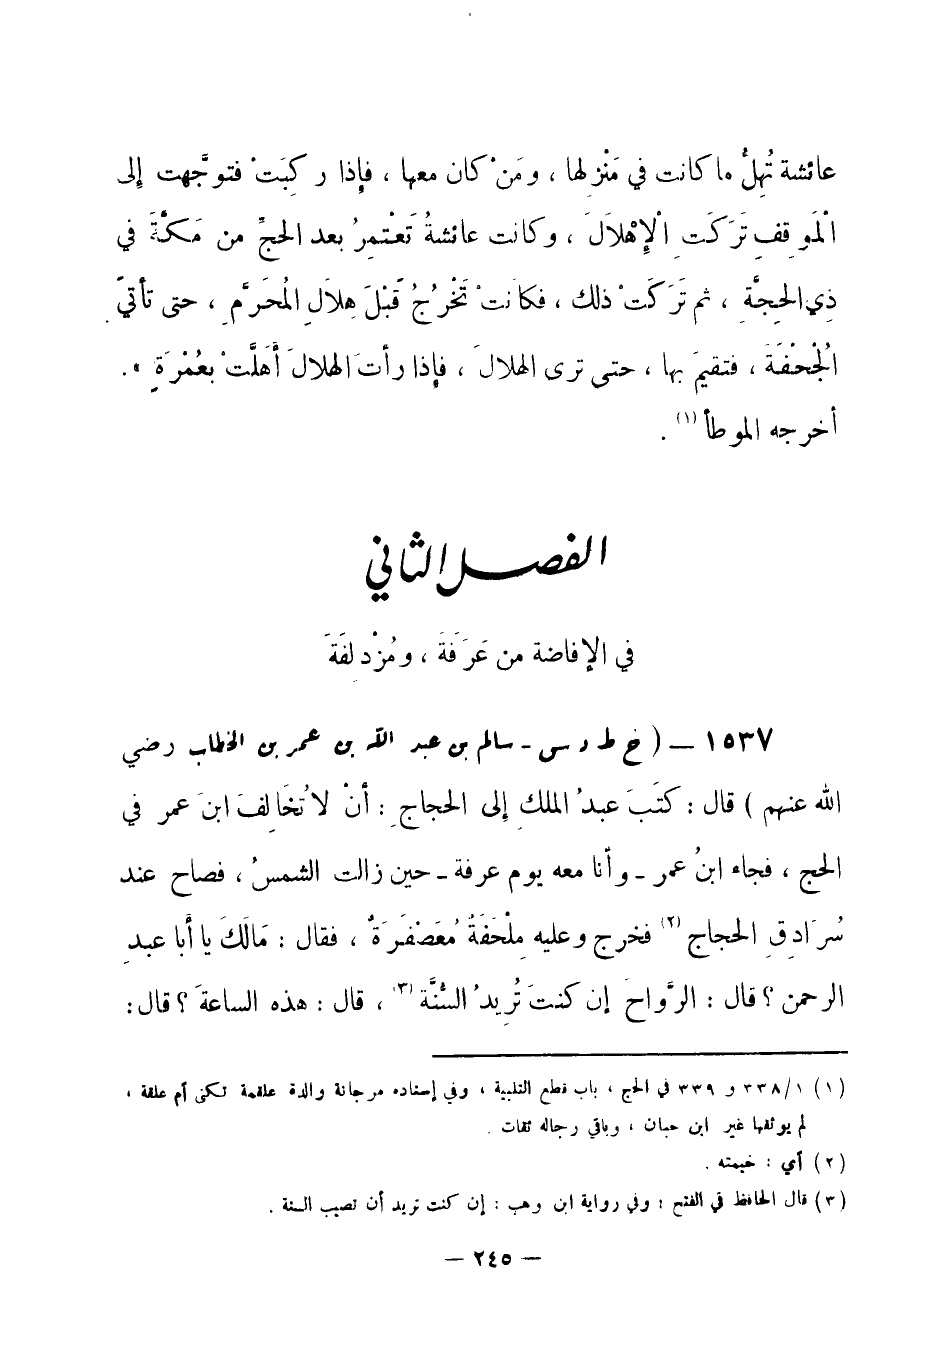 عائشة تُهِلُّ ما كانت في مَنْزِلها ، ومَنْ كان معها ، فإذا ركِبَتْ فتوجَّهت إلى
الْمَوقِفِ تَرَكَتِ الْإِهْلَالَ ، وكانت عائشةُ تَعْتمِرُ بعد الحجِّ من مَكَّةَ في
ذِي الحِجَّةِ ، ثم تَرَكَتْ ذلك ، فكانتْ تَخْرُجُ قَبْلَ هِلَالِ المُحَرَّمِ ، حتى تأتيَ
الْجُحْفَةَ ، فتقيمَ بها ، حتى ترى الهلالَ ، فإذا رأت الهلالَ أَهَلَّتْ بعُمْرَةٍ » .
أخرجه الموطأ (١) .
الفصل الثاني
في الإفاضة من عَرَفَةَ ، ومُزْدلِفَةَ
١٥٣٧ – ( خ ط د س - سالم بن عبد الله بن عمر بن الخطاب رضي
الله عنهم ) قال : كتَبَ عبدُ الملكِ إلى الحجاجِ : أنْ لا تُخَالِفَ ابنَ عمر في
الحج ، فجاء ابنُ عمر - وأنا معه يوم عرفة - حين زالت الشمسُ ، فصاح عند
سُرَادِقِ الحجاج (٢) فخرج وعليه مِلْحَفَةٌ مُعَصْفَرَةٌ ، فقال : مَالَكَ يا أَبا عبدِ
الرحمن ؟ قال : الرَّواحَ إن كنتَ تُرِيدُ السُّنَّة (٣) ، قال : هذه الساعةَ ؟ قال :
(١) ٣٣٨/١ و ٣٣٩ في الحج ، باب قطع التلبية ، وفي إسناده مرجانة والدة علقمة تكنى أم علقة ،
لم يوثقها غير ابن حبان ، وباقي رجاله ثقات .
(٢) أي : خيمته .
(٣) قال الحافظ في الفتح : وفي رواية ابن وهب : إن كنت تريد أن تصيب السنة .
– ٢٤٥ –